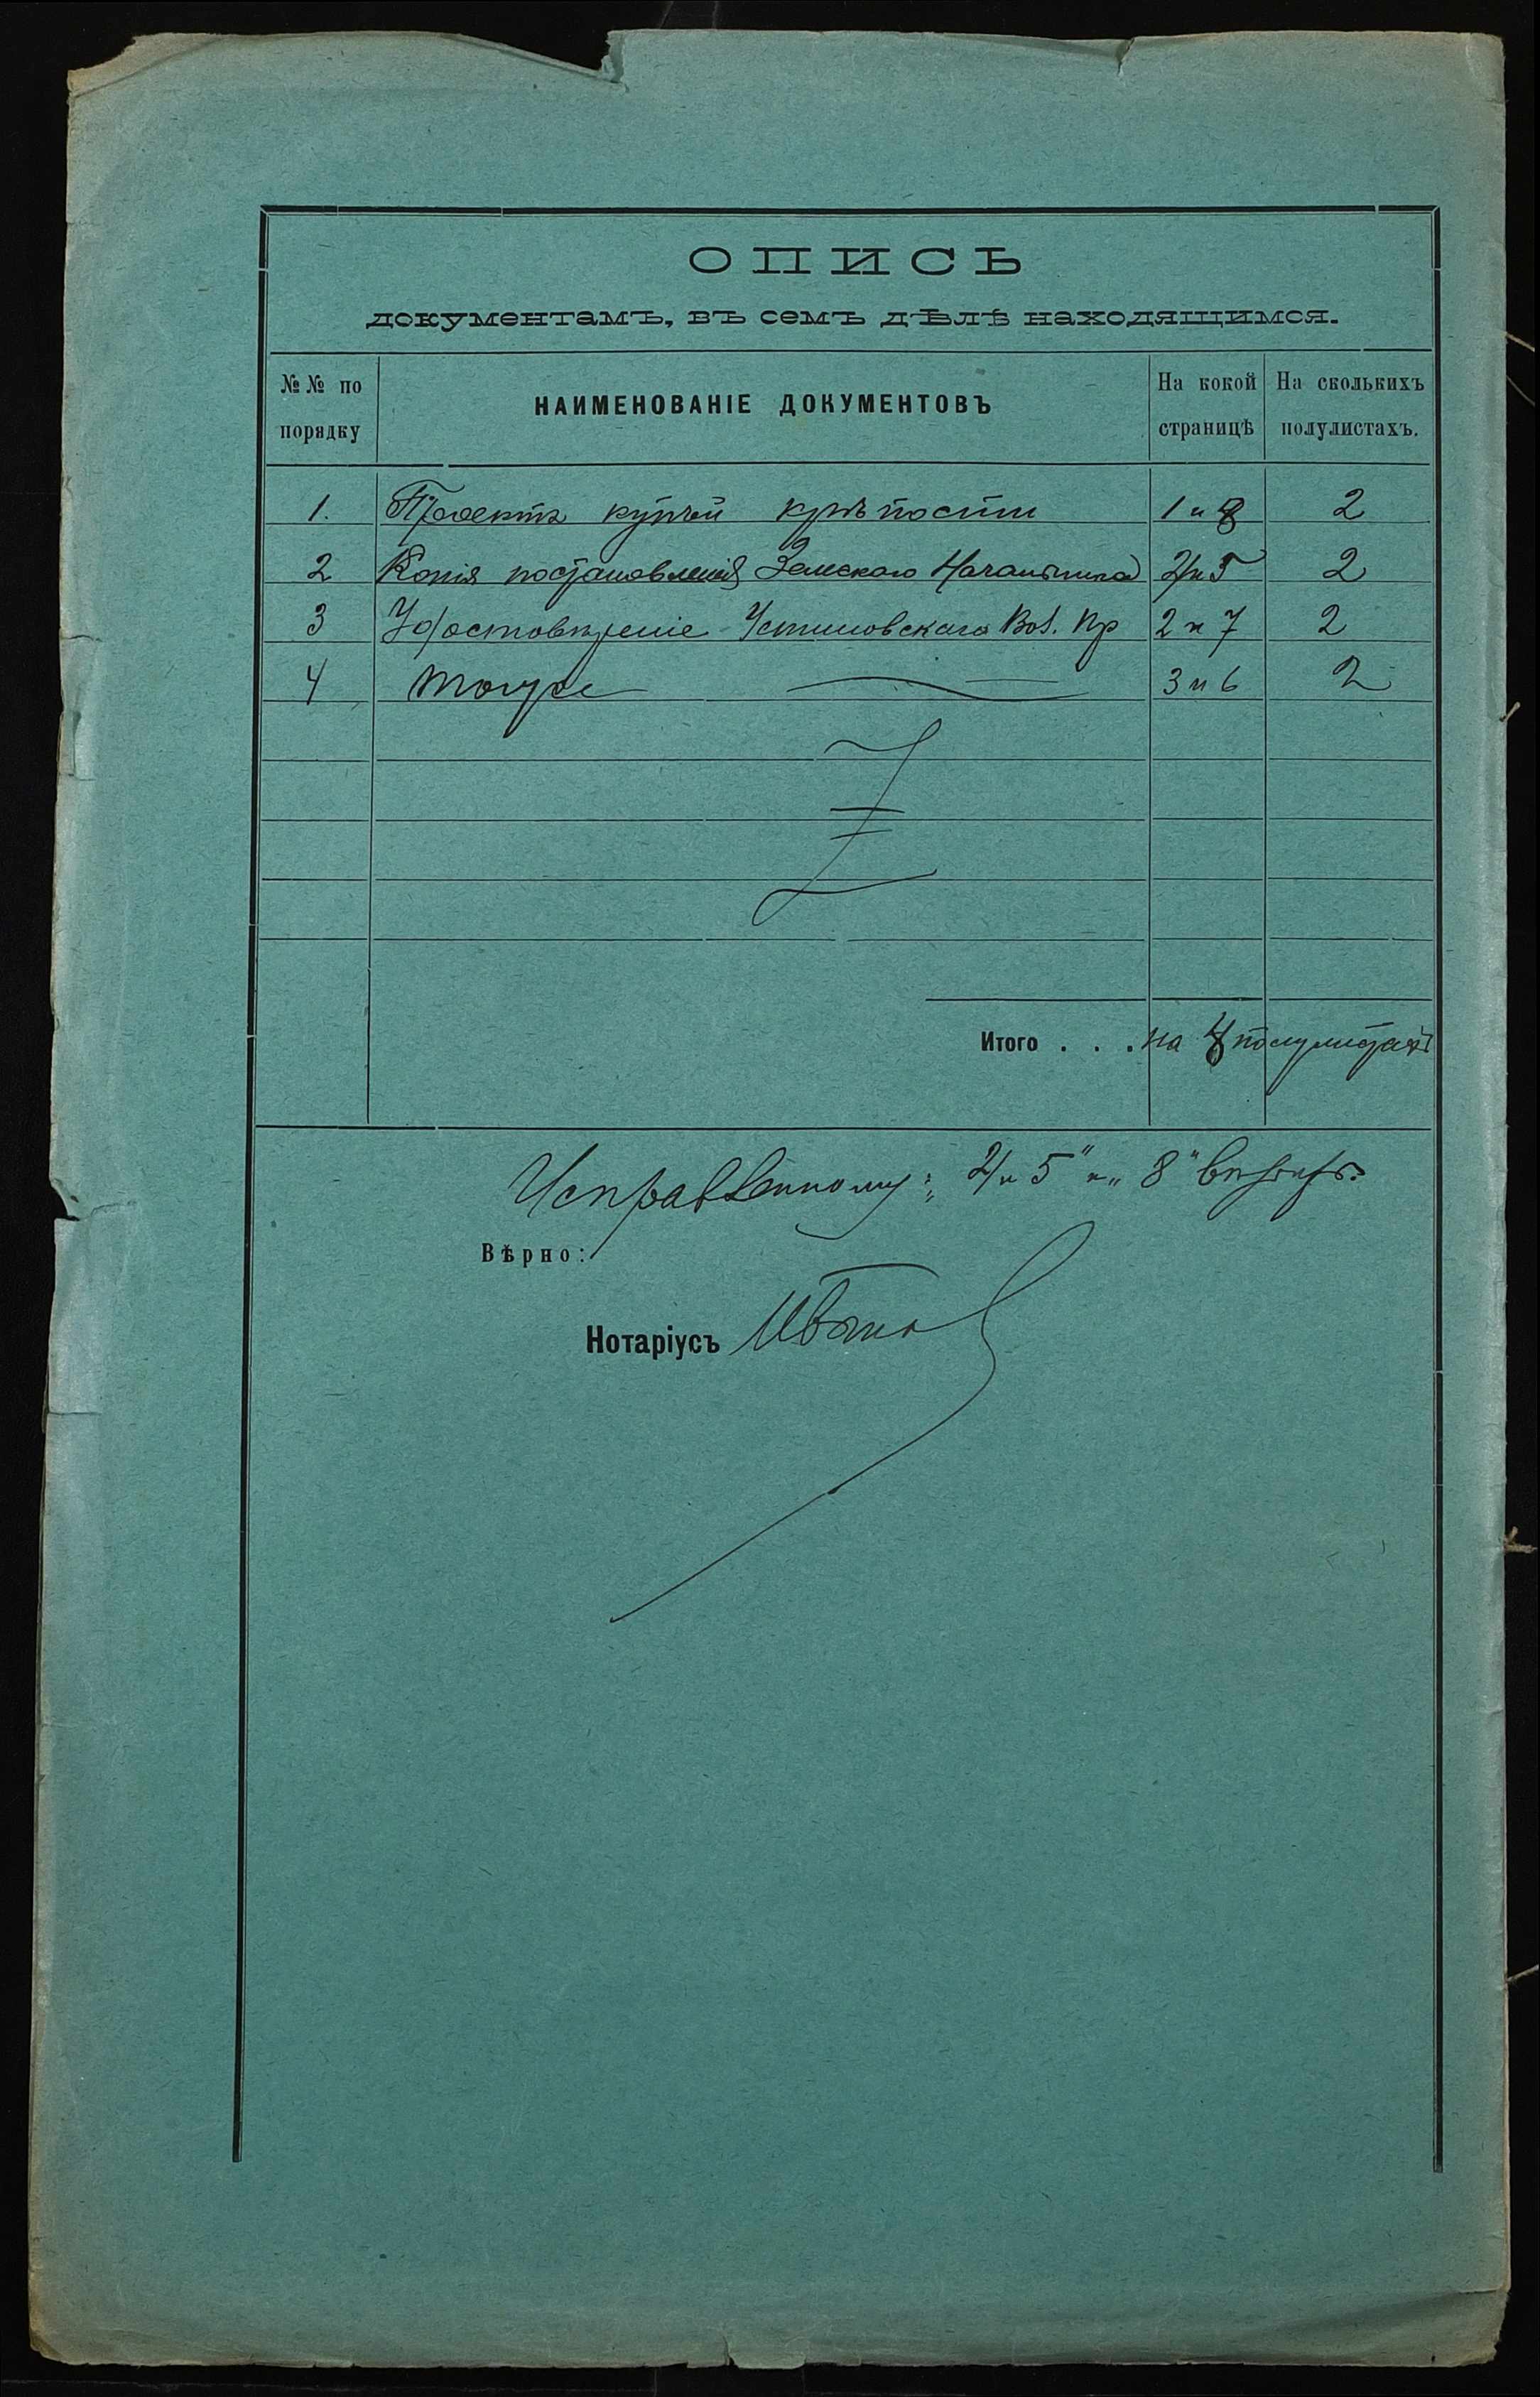 ОПИСЬ
документамъ, въ семъ дѣлѣ находящимся.
№№ по порядку НАИМЕНОВАНІЕ ДОКУМЕНТОВЪ На кокой страницѣ На сколькихъ полулистахъ.
1. Проектъ купчей крѣпости 1 и 8 2
2 Копія постановленія Земскаго Начальника 4 и 5 2
3 Удостовѣреніе Устиновскаго Вол. Пр 2 и 7 2
4 Тоже 3 и 6 2
Итого . . . на 8 полулистахъ
Исправленному: „4 и 5" и „8" вѣрить.
Вѣрно:
Нотаріусъ